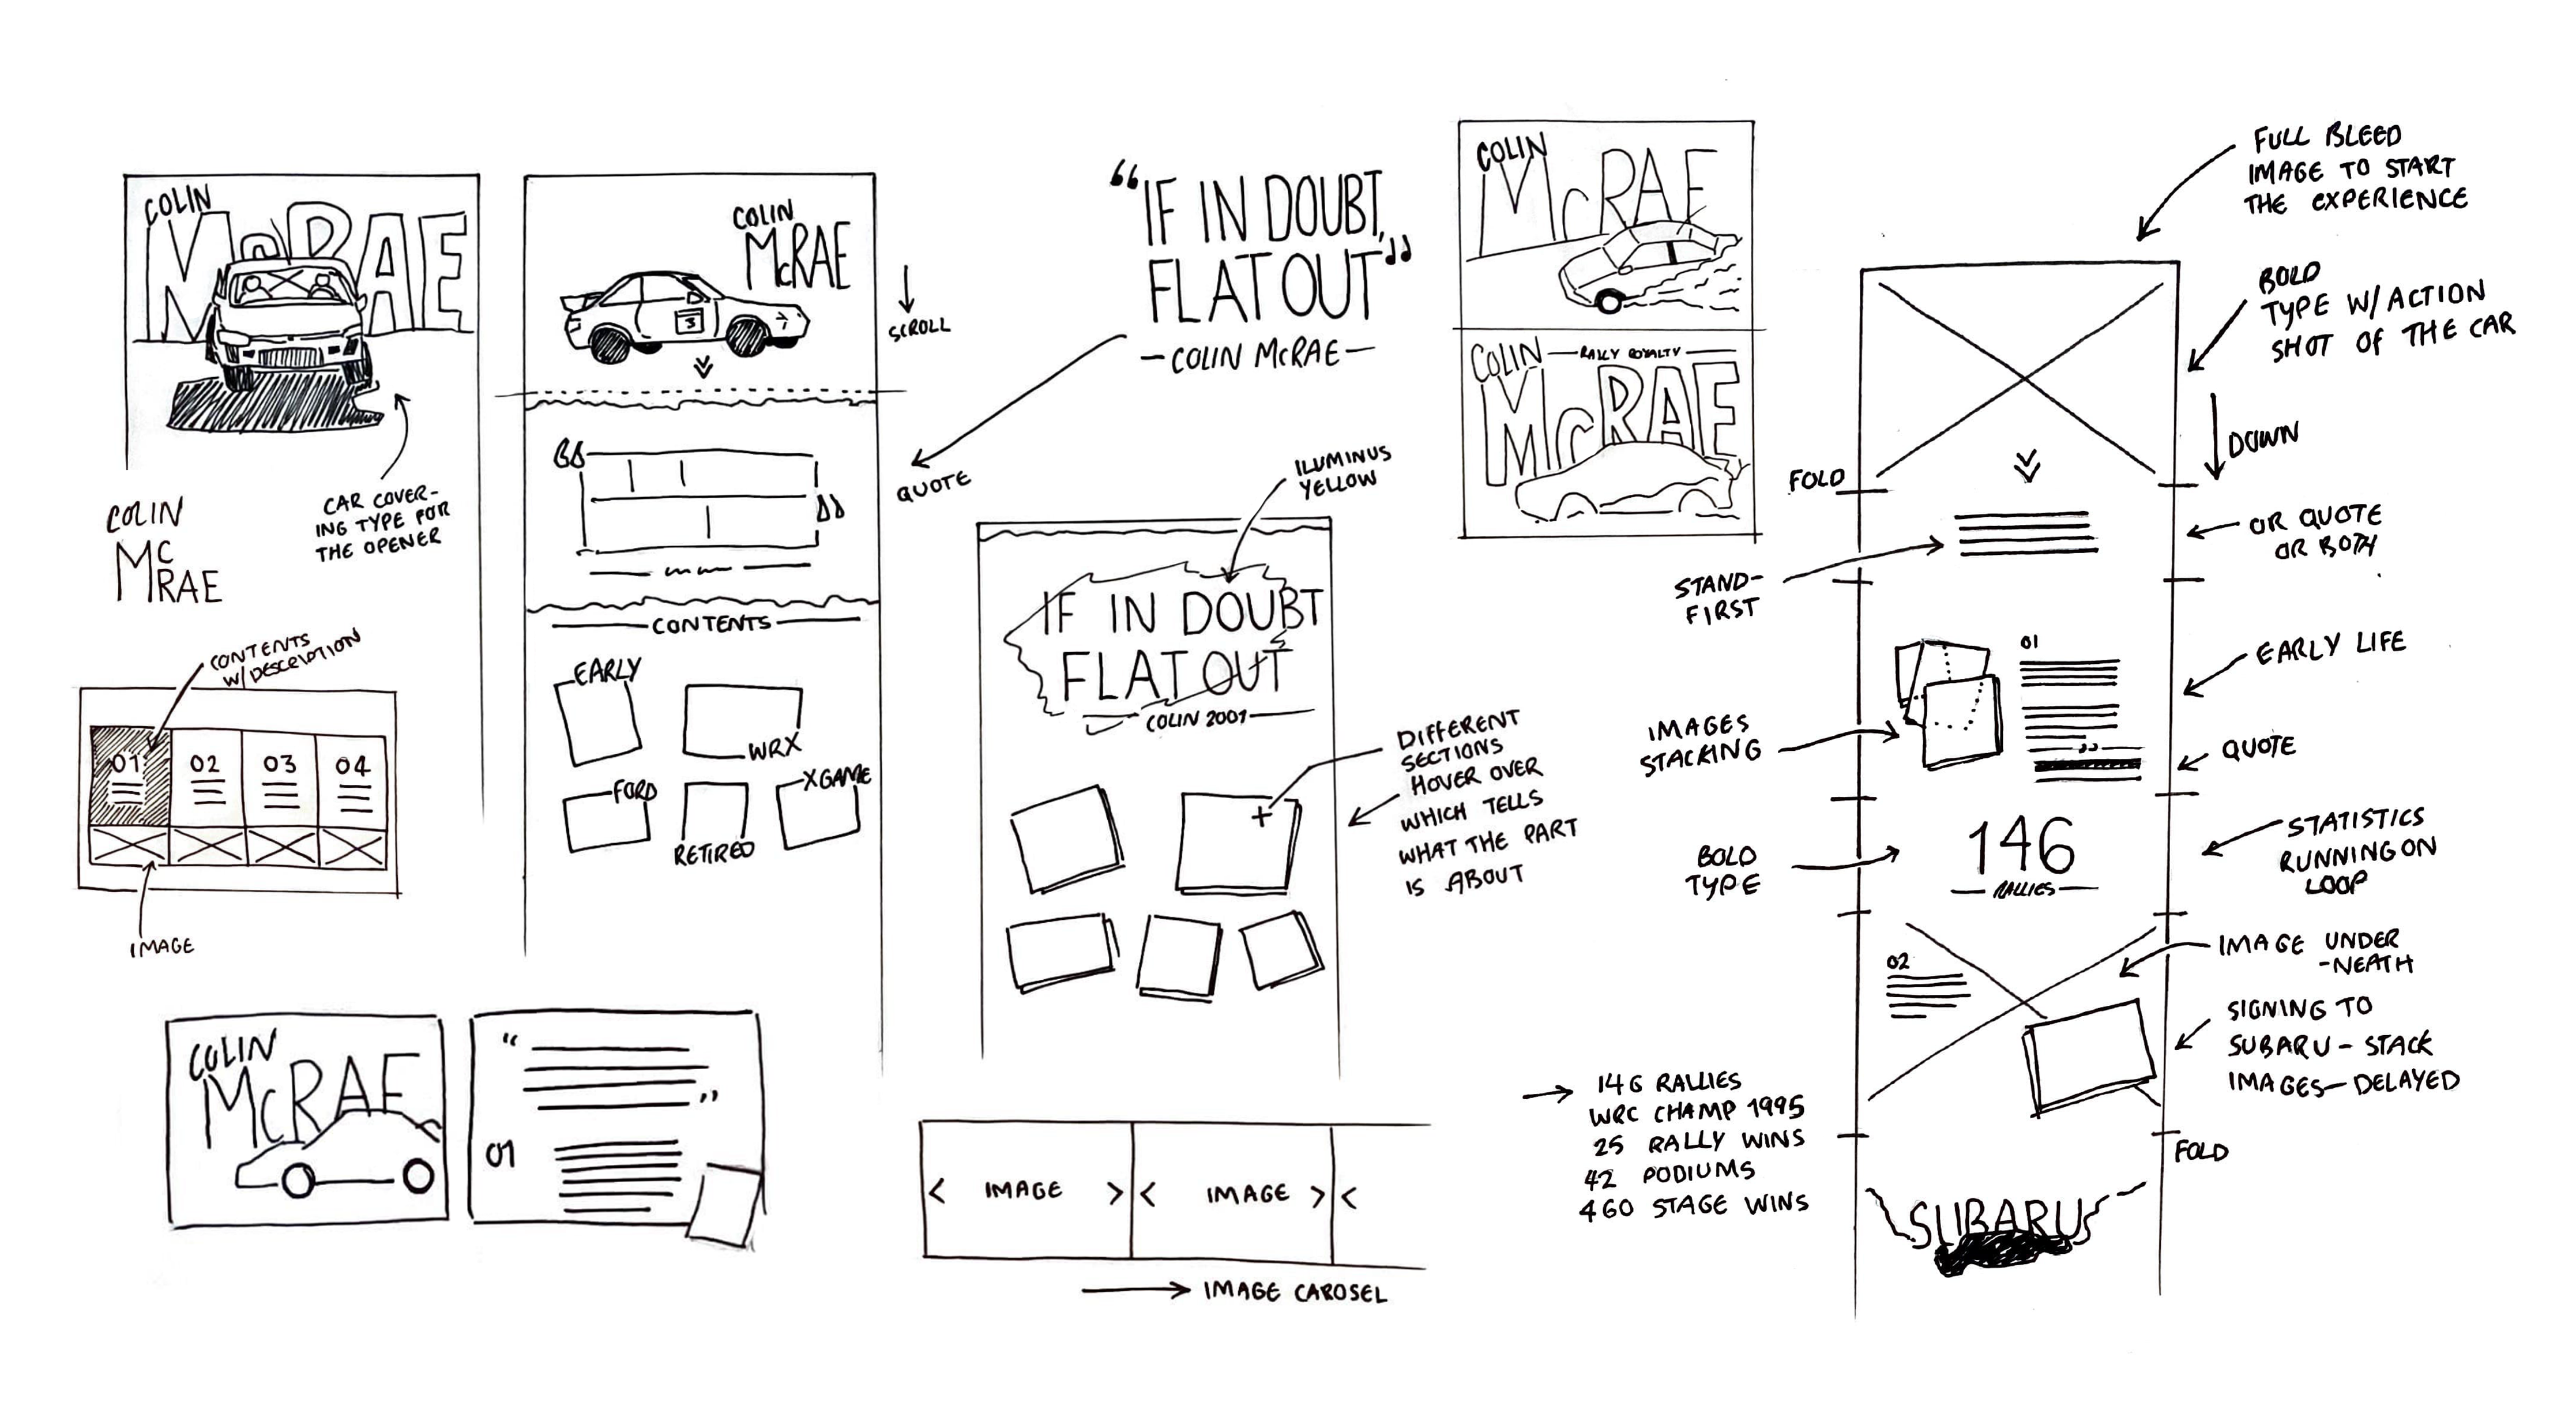 COLIN
McRAE
CAR COVER-
ING TYPE FOR
THE OPENER
COLIN
McRAE
CONTENTS
W/DESCRIPTION
01
02
03
04
IMAGE
COLIN
McRAE
3
SCROLL
QUOTE
CONTENTS
EARLY
WRX
FORD
RETIRED
XGAME
COLIN
McRAE
“
”
01
“IF IN DOUBT,
FLAT OUT”
—COLIN McRAE—
ILUMINUS
YELLOW
IF IN DOUBT
FLAT OUT
COLIN 2001
+
DIFFERENT
SECTIONS
HOVER OVER
WHICH TELLS
WHAT THE PART
IS ABOUT
< IMAGE > < IMAGE > <
IMAGE CAROSEL
COLIN
McRAE
COLIN —RALLY ROYALTY—
McRAE
FULL BLEED
IMAGE TO START
THE EXPERIENCE
BOLD
TYPE W/ACTION
SHOT OF THE CAR
DOWN
FOLD
OR QUOTE
OR BOTH
STAND-
FIRST
01
EARLY LIFE
IMAGES
STACKING
QUOTE
BOLD
TYPE
146
— RALLIES —
STATISTICS
RUNNING ON
LOOP
02
IMAGE UNDER
-NEATH
SIGNING TO
SUBARU - STACK
IMAGES - DELAYED
→ 146 RALLIES
WRC CHAMP 1995
25 RALLY WINS
42 PODIUMS
460 STAGE WINS
FOLD
SUBARU